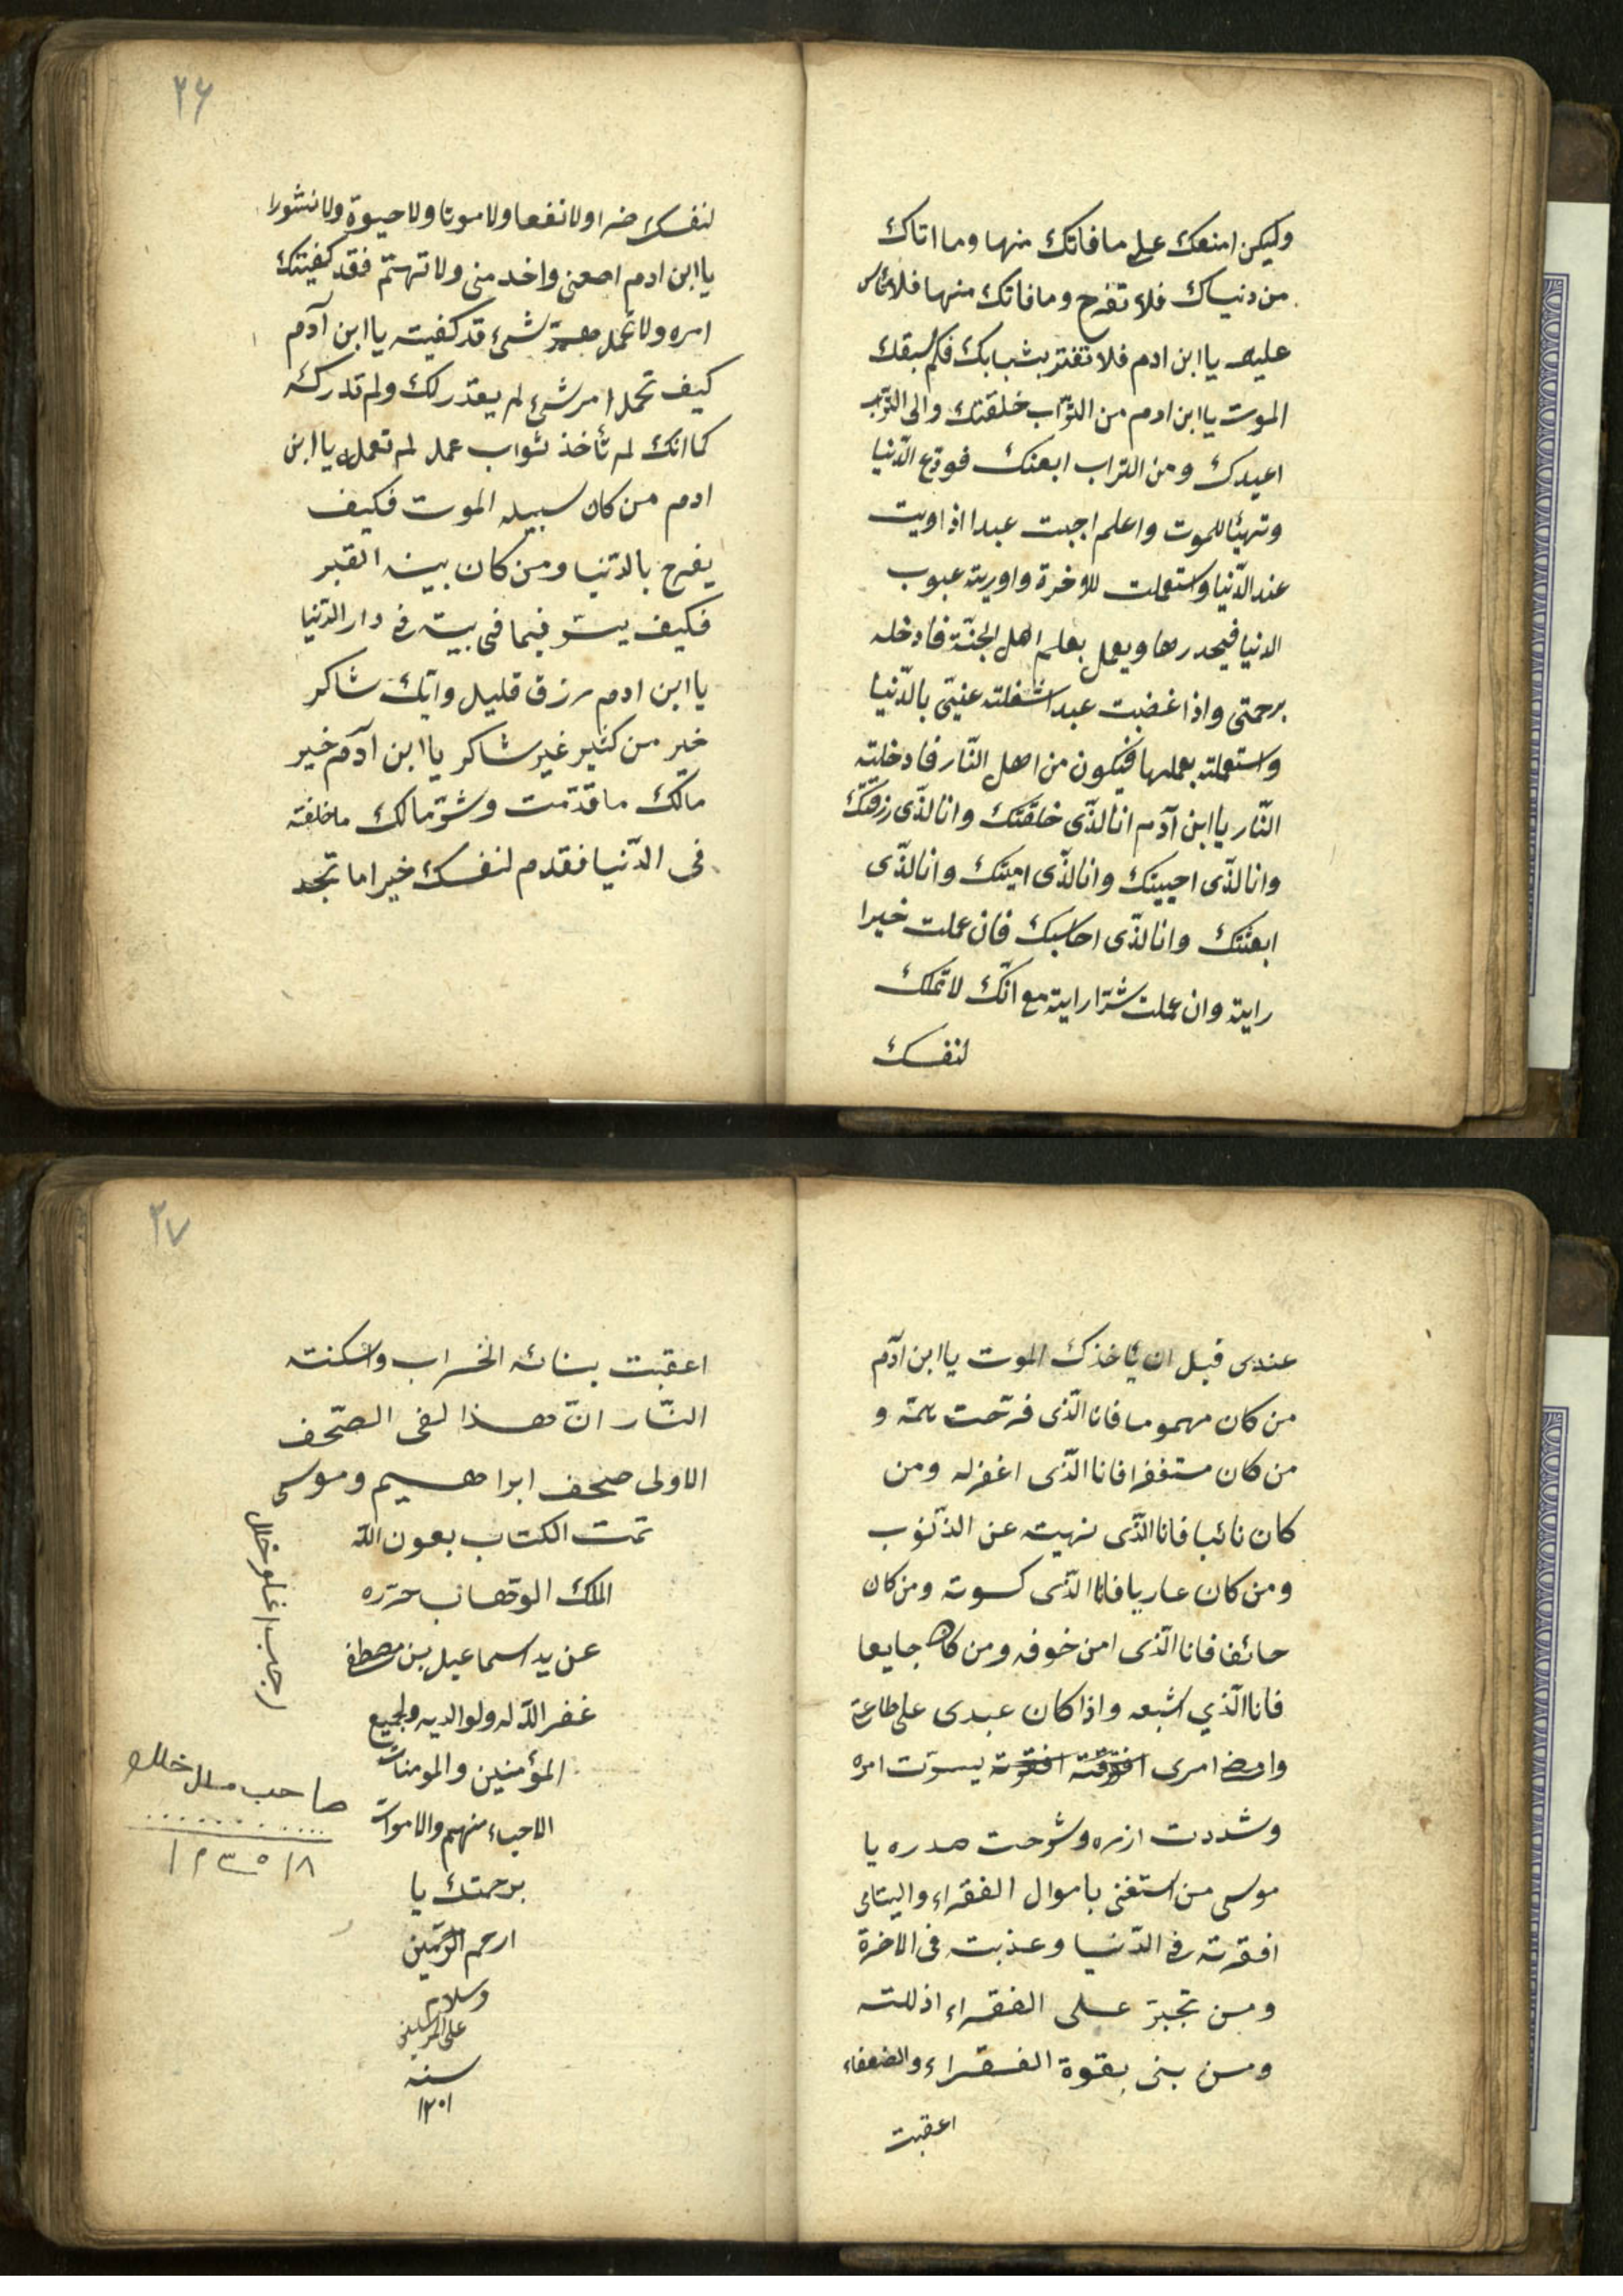 وليكن امنعك على ما فاتك منها وما اتاك
من دنياك فلا تفرح وما فاتك منها فلا تأس
عليه يا ابن ادم فلا تغتر بشبابك فكم سبقك
الموت يا ابن ادم من التّراب خلقتك والى التّراب
اعيدك ومن التراب ابعثك فودّع الدّنيا
وتهيّأ للموت واعلم اجبت عبدا اذا ويت
عند الدّنيا واستعملت للاخرة واوريته عيوب
الدنيا فيحدرها ويعمل بعلم اهل الجنّة فادخله
برحمتى واذا غضبت عبدا شغلته عنيّى بالدّنيا
واستعملته بعملها فيكون من اهل النّار فادخلته
النّار يا ابن آدم انا لذّى خلقتك وانا لذّى رزقتك
وانا لذّى احييتك وانا لذّى امیتك وانا لذّى
ابعثتك وانا لذّى احاسبك فان عملت خيرا
رايته وان عملت شرّا رايته مع انّك لا تملك
لنفسك
٢۶
لنفسك ضرا ولا نفعا ولا موتا ولا حيوة ولا نشورا
يا ابن ادم اصعنى واخد منى ولا تهتمّ فقد كفيتك
امره ولا تحمل شئ قد كفيته يا ابن آدم
كيف تحمل امر شئ لم يقدر لك ولم تدركه
كما انك لم تأخذ ثواب عمل لم تعمل يا ابن
ادم من كان سبيله الموت فكيف
يفرح بالدّنيا ومن كان بيته القبر
فكيف يسّر فيما فى بيته فى دار الدّنيا
يا ابن ادم رزق قليل واتّك شاكر
خير من كثير غير شاكر يا ابن آدم خير
مالك ما قدّمت وشرّ مالك ما خلفته
فى الدّنيا فقدم لنفسك خيرا ما تجد
عندى قبل ان يأخذك الموت يا ابن ادّم
من كان مهموما فانا الّذى فرّحت همّه و
من كان مستغفرا فانا الّذى اغفر له ومن
كان تائبا فانا الّذى نهيته عن الذّنوب
ومن كان عاريا فانا الّذى كسوته ومن كان
حائفا فانا الّذى امن خوفه ومن كان جايعا
فانا الّذي اشبعه واذا كان عبدى على طاعة
وامض امرى يسرّت امره
وشددت ازره وشرحت صدره يا
موسى من استغنى باموال الفقراء واليتامى
افقرته فى الدّنيا وعذبت فى الاخرة
ومن تجبرّ على الفقراء اذللته
ومن بنى بقوة الفقراء والضعفاء
اعقبت
٢٧
اعقبت بنائه الخراب واسكنته
النّار انّ هذا لفى الصّحف
الاولى صحف ابراهيم وموسى
تمت الكتاب بعون اللّه
الملك الوهّاب حرّره
عن يد اسماعيل بن مصطفى
غفر اللّه له ولوالديه ولجميع
المؤمنين والمومنات
الاحياء منهم والاموات
برحمتك يا
ارحم الرّحمين
وسلام
على المرسلين
سنه
١٢٠١
رجب اغلو خلل
صاحب خلل